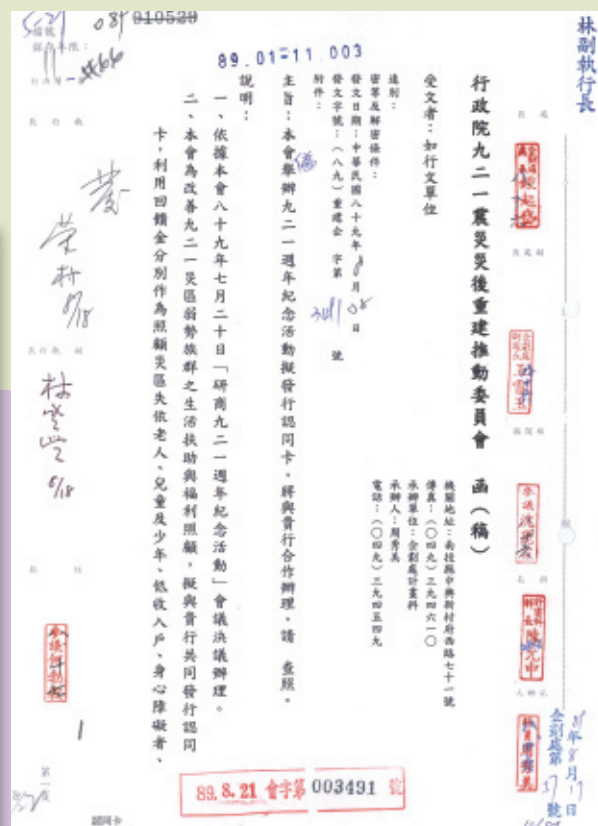 林副執行長
行政院九二一震災災後重建推動委員會 函（稿）
機關地址：南投縣中興新村府西路七十一號
傳真：（○四九）三九四六一○
承辦單位：企劃處計畫科
承辦人：周秀美
電話：（○四九）三九四五四九
受文者：如行文單位
速別：
密等及解密條件：
發文日期：中華民國八十九年8月08日
發文字號：（八九）重建企 字第 3491 號
附件：
主旨：本會舉辦九二一週年紀念活動擬發行認同卡，將與貴行合作辦理，請 查照。
說明：
一、依據本會八十九年七月二十日「研商九二一週年紀念活動」會議決議辦理。
二、本會為改善九二一災區弱勢族群之生活扶助與福利照顧，擬與貴行共同發行認同
卡，利用回饋金分別作為照顧災區失依老人、兒童及少年、低收入戶、身心障礙者、
010529
檔號
保存年限：
89.01-11.003
89年8月17日
企劃處第17號
89.8.21 會字第 003491 號
認同卡